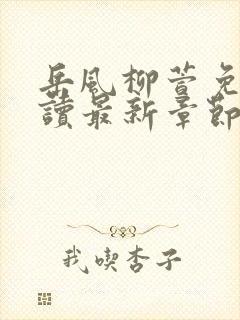 岳風柳萱免
讀最新章節
我喫杏子